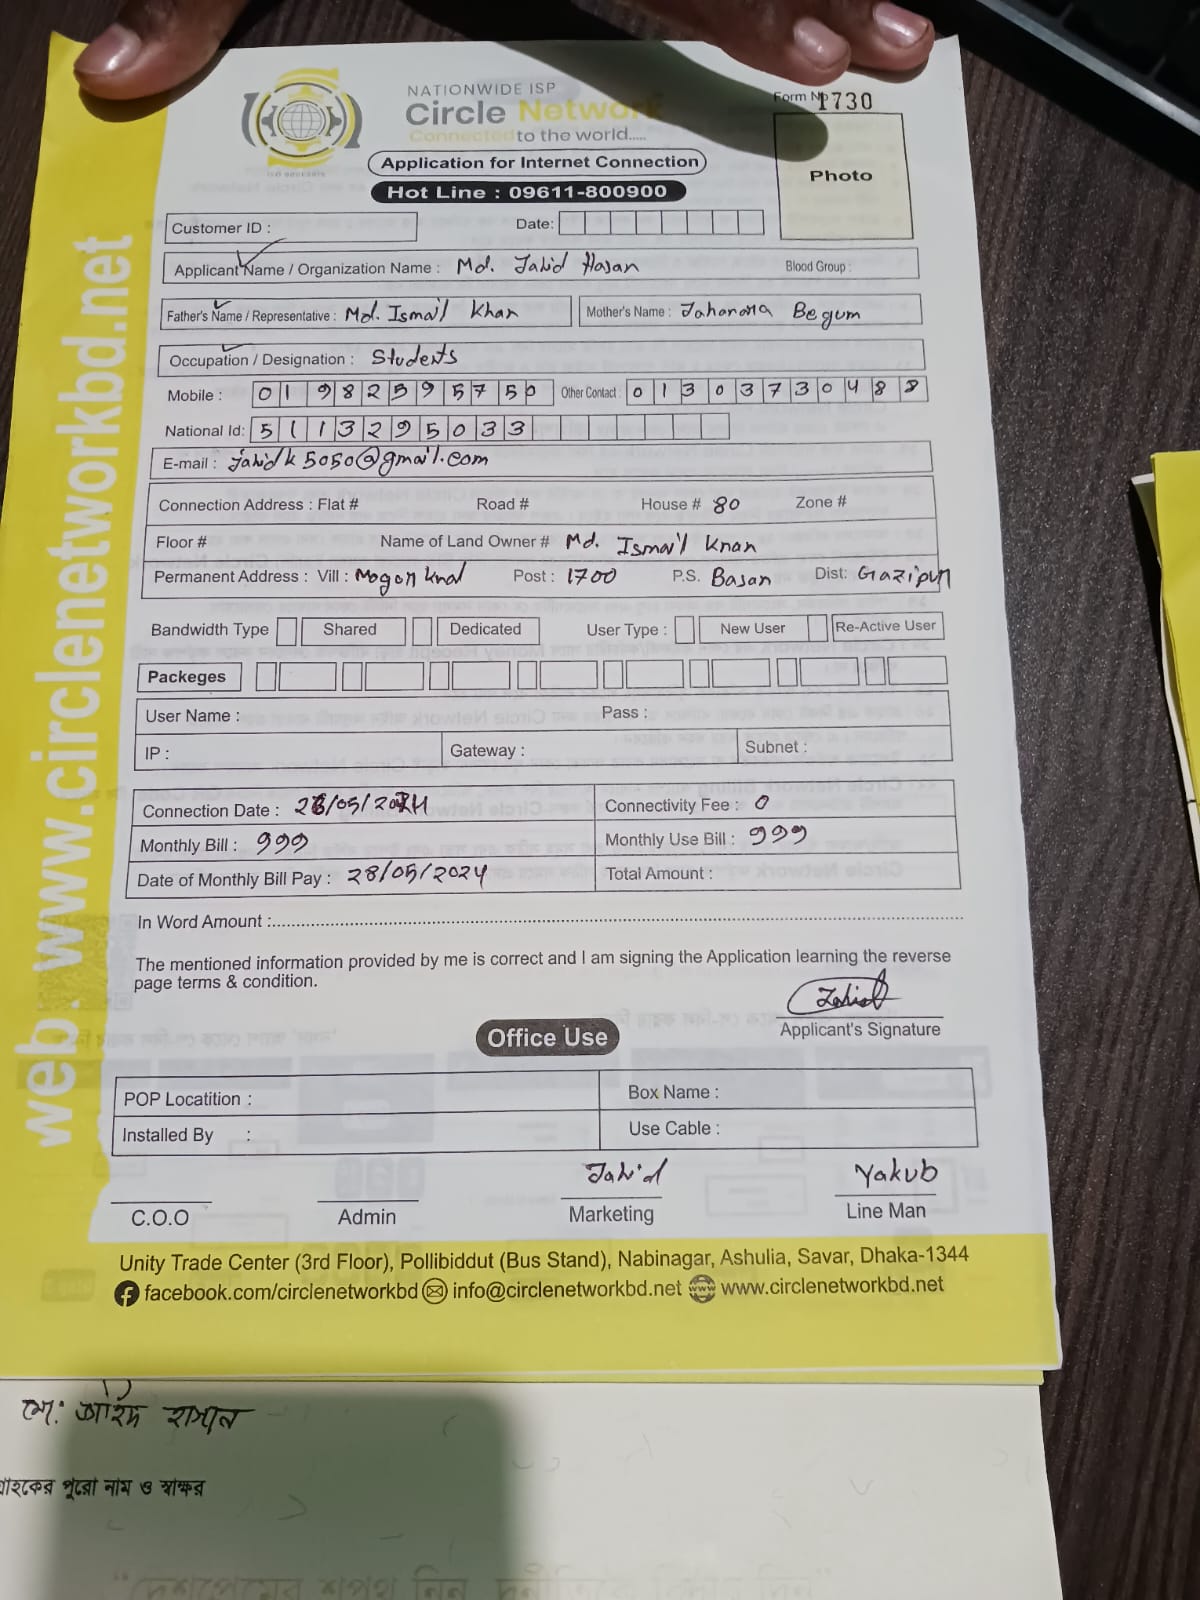 NATIONWIDE ISP
Circle Network
Connected to the world.....
Form No 1730
Application for Internet Connection
Hot Line : 09611-800900
Photo
ISO 9001:2015
Customer ID :
Date:
Applicant Name / Organization Name : Md. Jahid Hasan Blood Group :
Father's Name / Representative : Md. Ismail Khan Mother's Name : Jahanara Begum
Occupation / Designation : Students
Mobile : 01982595750 Other Contact : 01303730488
National Id: 5113295033
E-mail : jahidk5050@gmail.com
Connection Address : Flat # Road # House # 80 Zone #
Floor # Name of Land Owner # Md. Ismail Khan
Permanent Address : Vill : Mogor Khal Post : 1700 P.S. Basan Dist: Gazipur
Bandwidth Type Shared Dedicated User Type : New User Re-Active User
Packeges
User Name : Pass :
IP : Gateway : Subnet :
Connection Date : /05/2024 Connectivity Fee : 0
Monthly Bill : 999 Monthly Use Bill : 999
Date of Monthly Bill Pay : 28/05/2024 Total Amount :
In Word Amount :
The mentioned information provided by me is correct and I am signing the Application learning the reverse
page terms & condition.
Jahid
Applicant's Signature
Office Use
POP Locatition : Box Name :
Installed By : Use Cable :
Jahid Yakub
C.O.O Admin Marketing Line Man
Unity Trade Center (3rd Floor), Pollibiddut (Bus Stand), Nabinagar, Ashulia, Savar, Dhaka-1344
facebook.com/circlenetworkbd info@circlenetworkbd.net www.circlenetworkbd.net
web: www.circlenetworkbd.net
মো: জাহিদ হাসান
গ্রাহকের পুরো নাম ও স্বাক্ষর